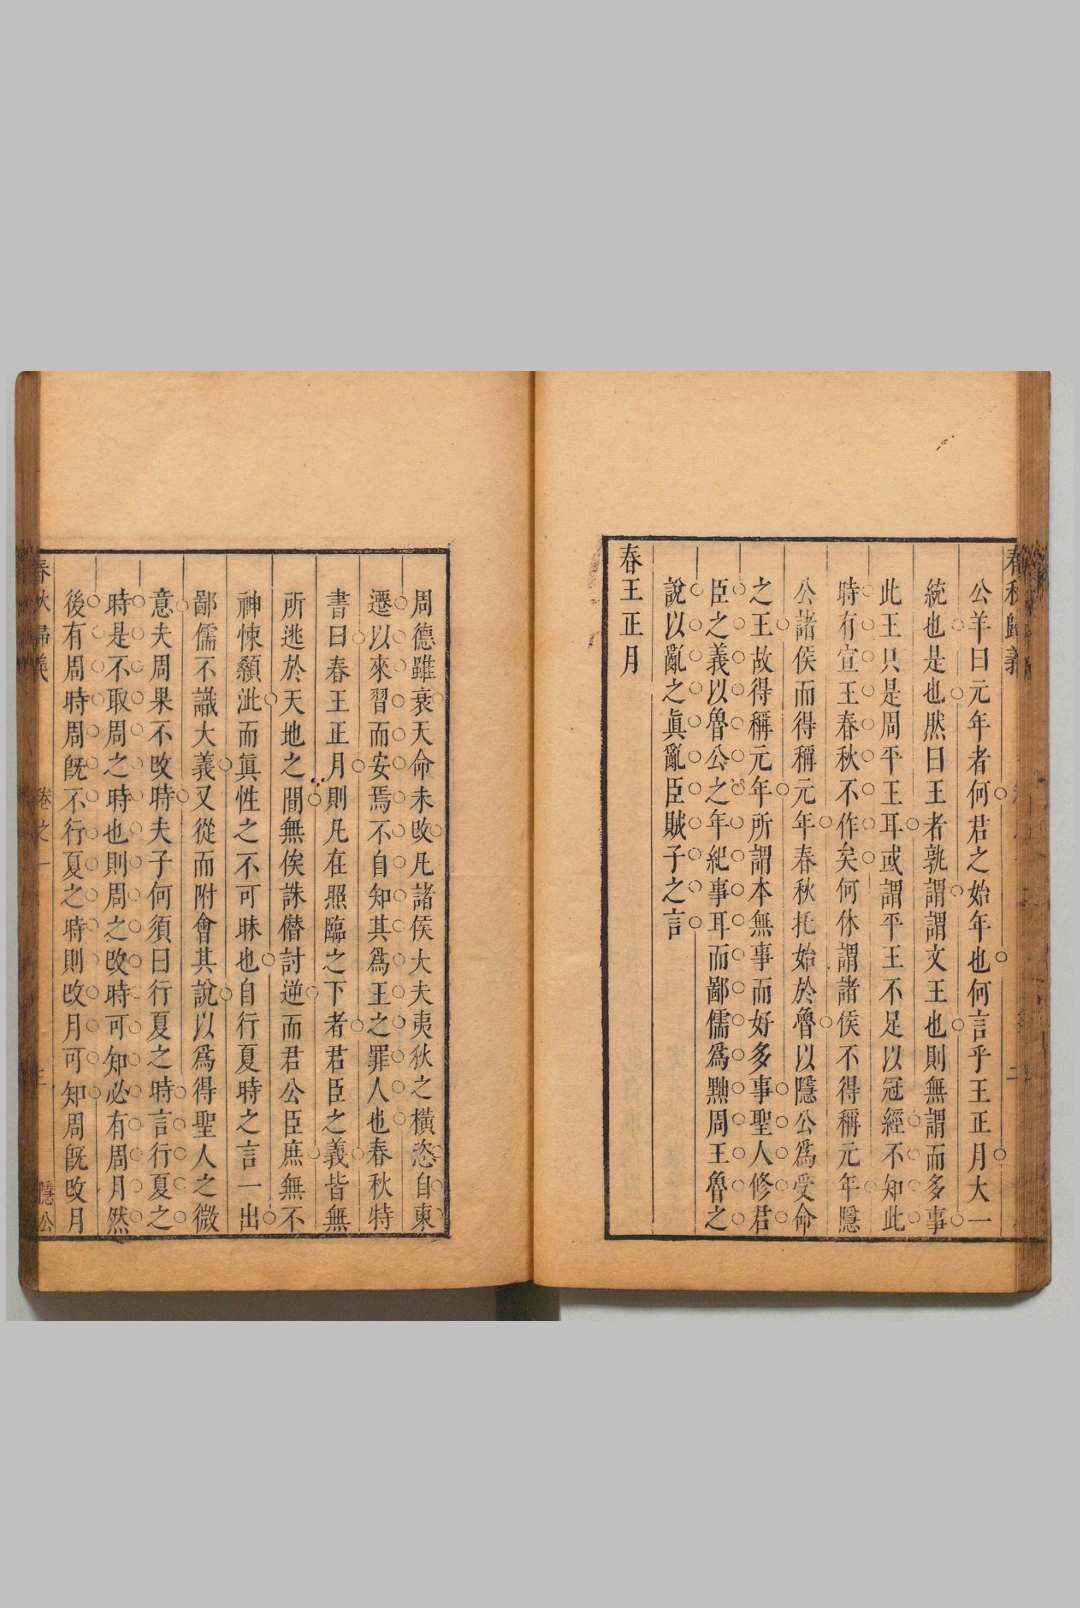 春秋歸義
公羊曰元年者何君之始年也何言乎王正月大一
統也是也然曰王者孰謂謂文王也則無謂而多事
此王只是周平王耳或謂平王不足以冠經不知此
時有宣王春秋不作矣何休謂諸侯不得稱元年隱
公諸侯而得稱元年春秋托始於魯以隱公爲受命
之王故得稱元年所謂本無事而好多事聖人修君
臣之義以魯公之年紀事耳而鄙儒爲黜周王魯之
說以亂之眞亂臣賊子之言
春王正月
周德雖衰天命未改凡諸侯大夫夷狄之橫恣自東
遷以來習而安焉不自知其爲王之罪人也春秋特
書曰春王正月則凡在照臨之下者君臣之義皆無
所逃於天地之間無俟誅僭討逆而君公臣庶無不
神悚顙泚而眞性之不可昧也自行夏時之言一出
鄙儒不識大義又從而附會其說以爲得聖人之微
意夫周果不改時夫子何須曰行夏之時言行夏之
時是不取周之時也則周之改時可知必有周月然
後有周時周旣不行夏之時則改月可知周旣改月
春秋歸義 卷之一 隱公